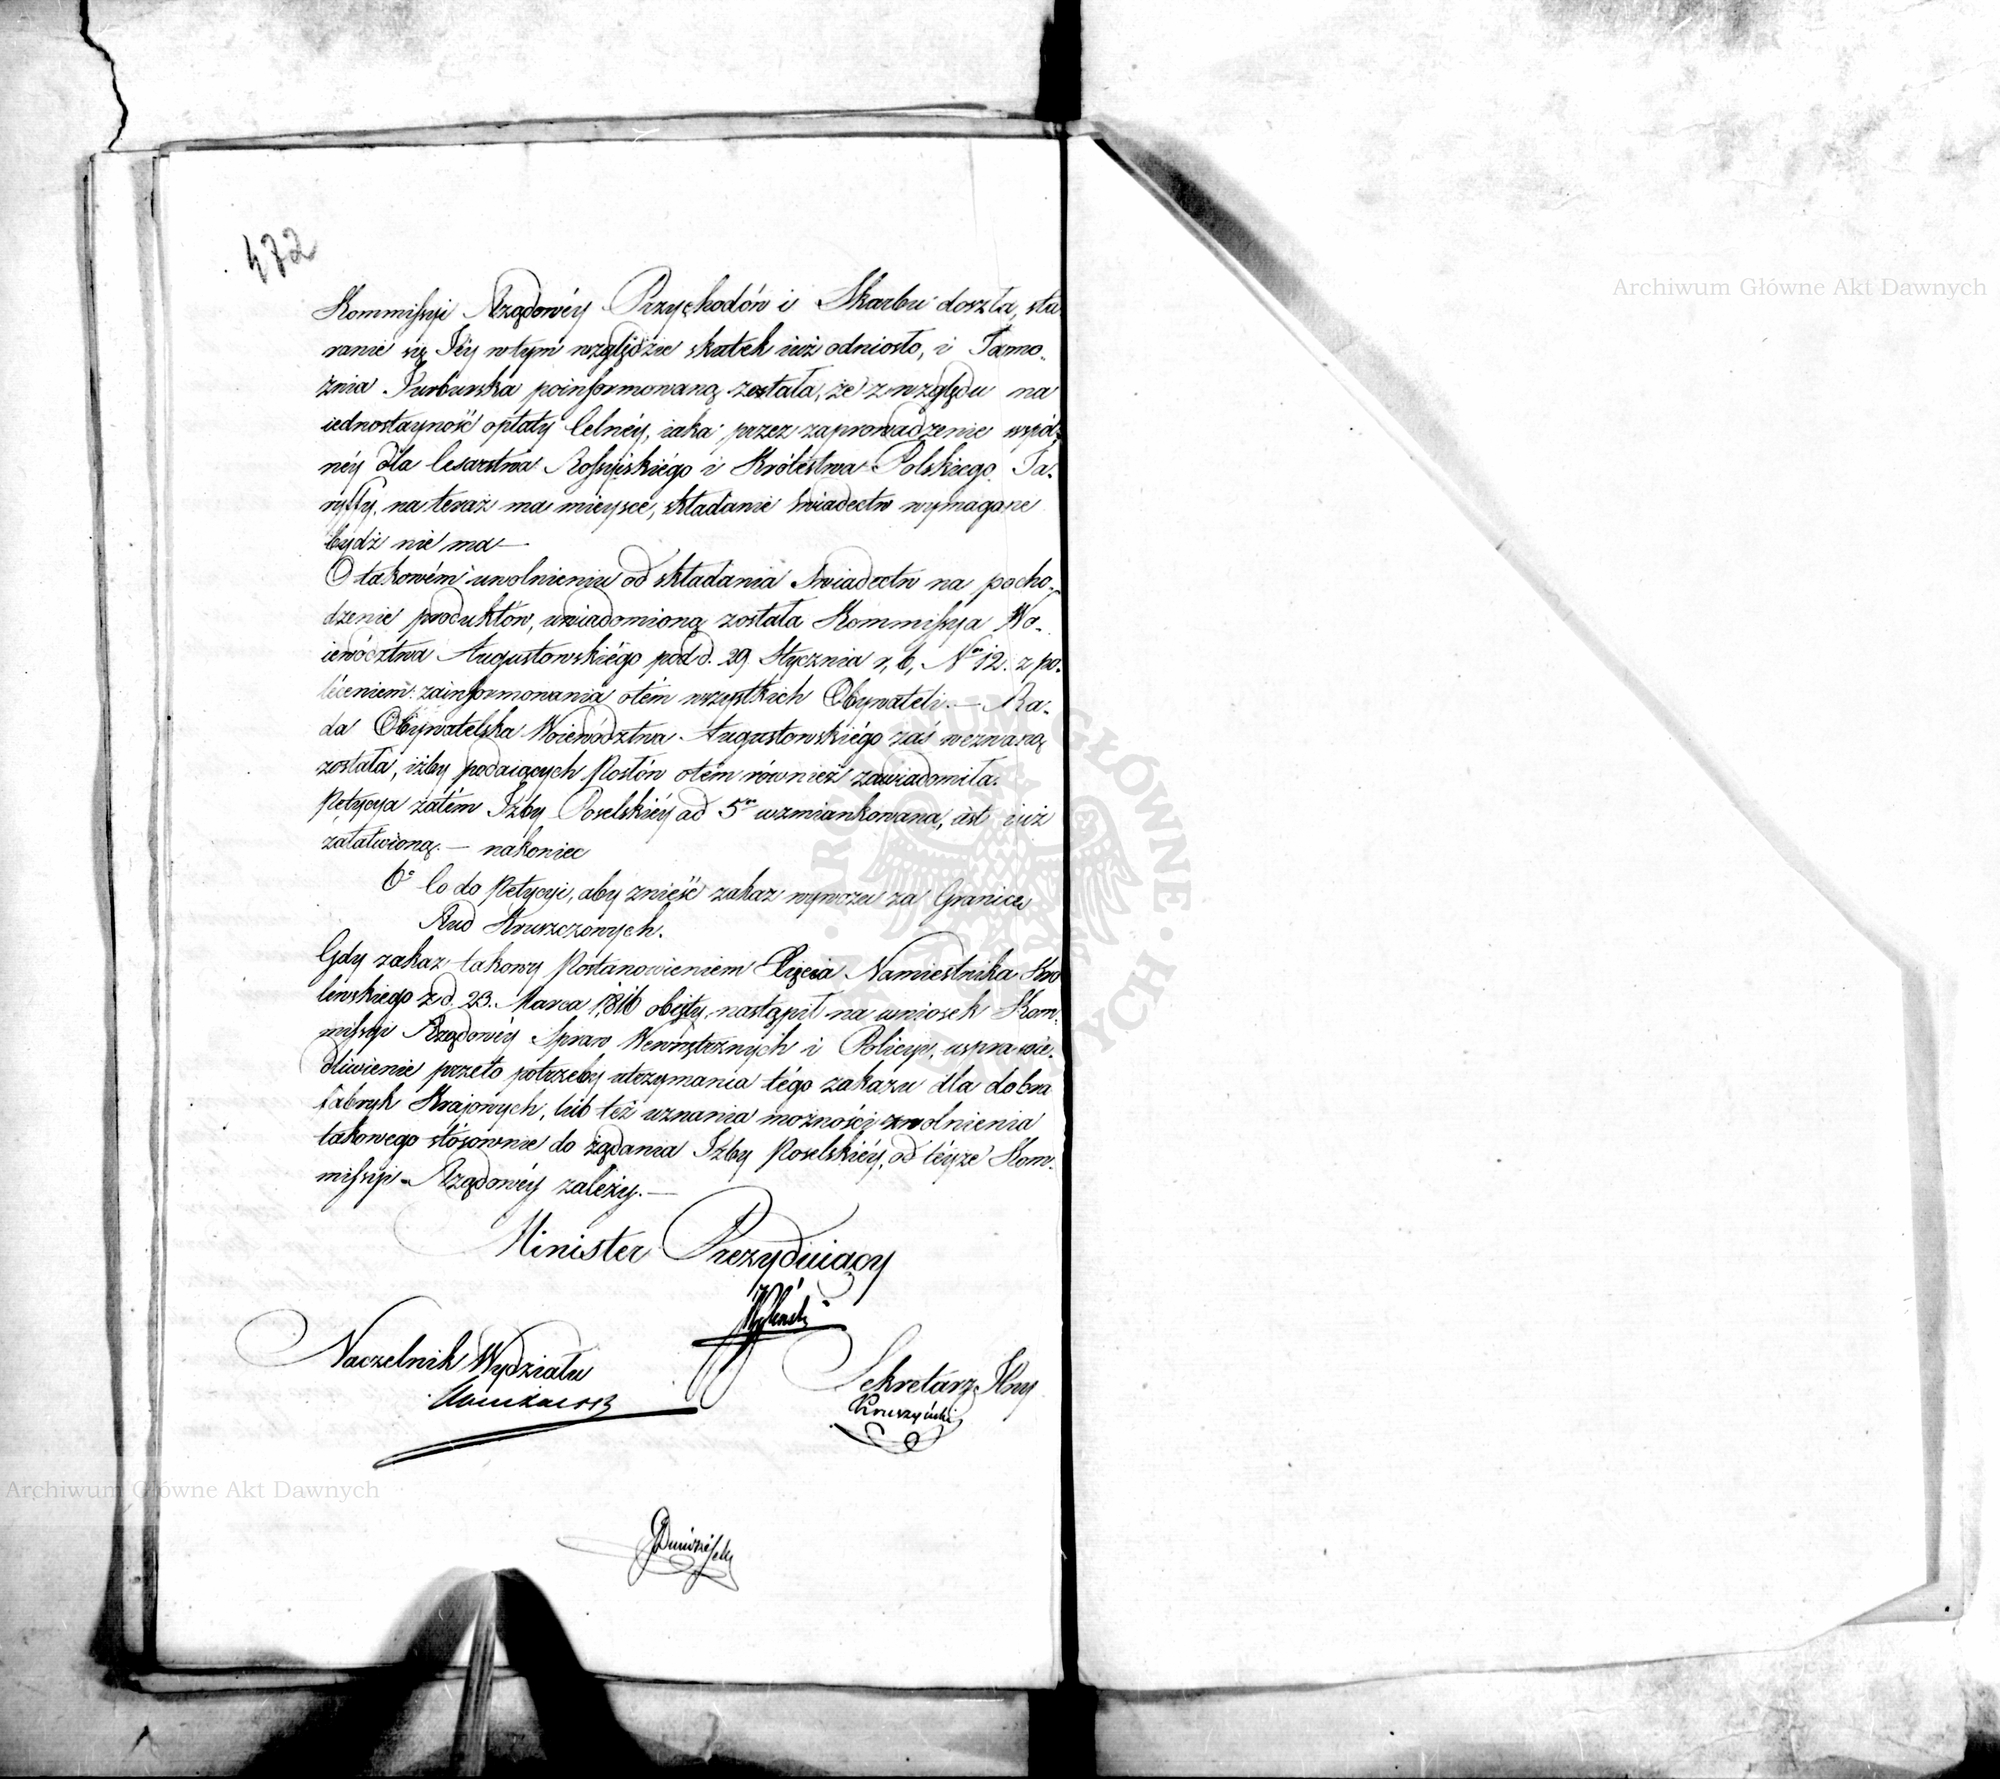 472
Kommissyi Rządowéy Przychodów i Skarbu doszła, sta
ranie się Jéy w tym względzie skutek iuż odniosło, i Tamo-
żnia Jurburska poinformowaną została, że z względu na
iednostayność opłaty Celnéy, iaka przez zaprowadzenie wspól-
néy dla Cesarstwa Rossyiskiégo i Królestwa Polskiego Ta-
ryffy, na teraz ma mieysce, składanie świadectw wymagane
bydź nie ma —
O takowém uwolnieniu od składania Świadectw na pocho-
dzenie produktów, uwiadomioną została Kommissya Wo-
iewództwa Augustowskiégo pod d. 29 Stycznia r, b, Nro 12. z po-
léceniem zainformowania otém wszystkich Obywateli. — Ra-
da Obywatelska Woiewództwa Augustowskiégo zaś wezwaną
została, iżby podaiących Posłów otém również zawiadomiła.
Petycya zatém Izby Poselskiéy ad 5to wzmiankowana, iest iuż
załatwioną. — nakoniec
6o Co do Petycyi, aby znieść zakaz wywozu za Granicę
Rud Kruszczowych.
Gdy zakaz takowy Postanowieniem Xięcia Namiestnika Kró
lewskiego z d. 23. Marca 1816 obięty, nastąpił na wniosek Kom-
missyi Rządowéy Spraw Wewnętrznych i Policyi, usprawie-
dliwienie przeto potrzeby utrzymania tégo zakazu dla dobra
Fabryk Krajowych, lub też uznania możności zwolnienia
takowego stósownie do żądania Izby Poselskiéy, od téyże Kom-
missyi Rządowéy zależy. —
Minister Prezyduiący
Naczelnik Wydziału
Sekretarz Jlny
Kruszyński
Archiwum Główne Akt Dawnych
Archiwum Główne Akt Dawnych